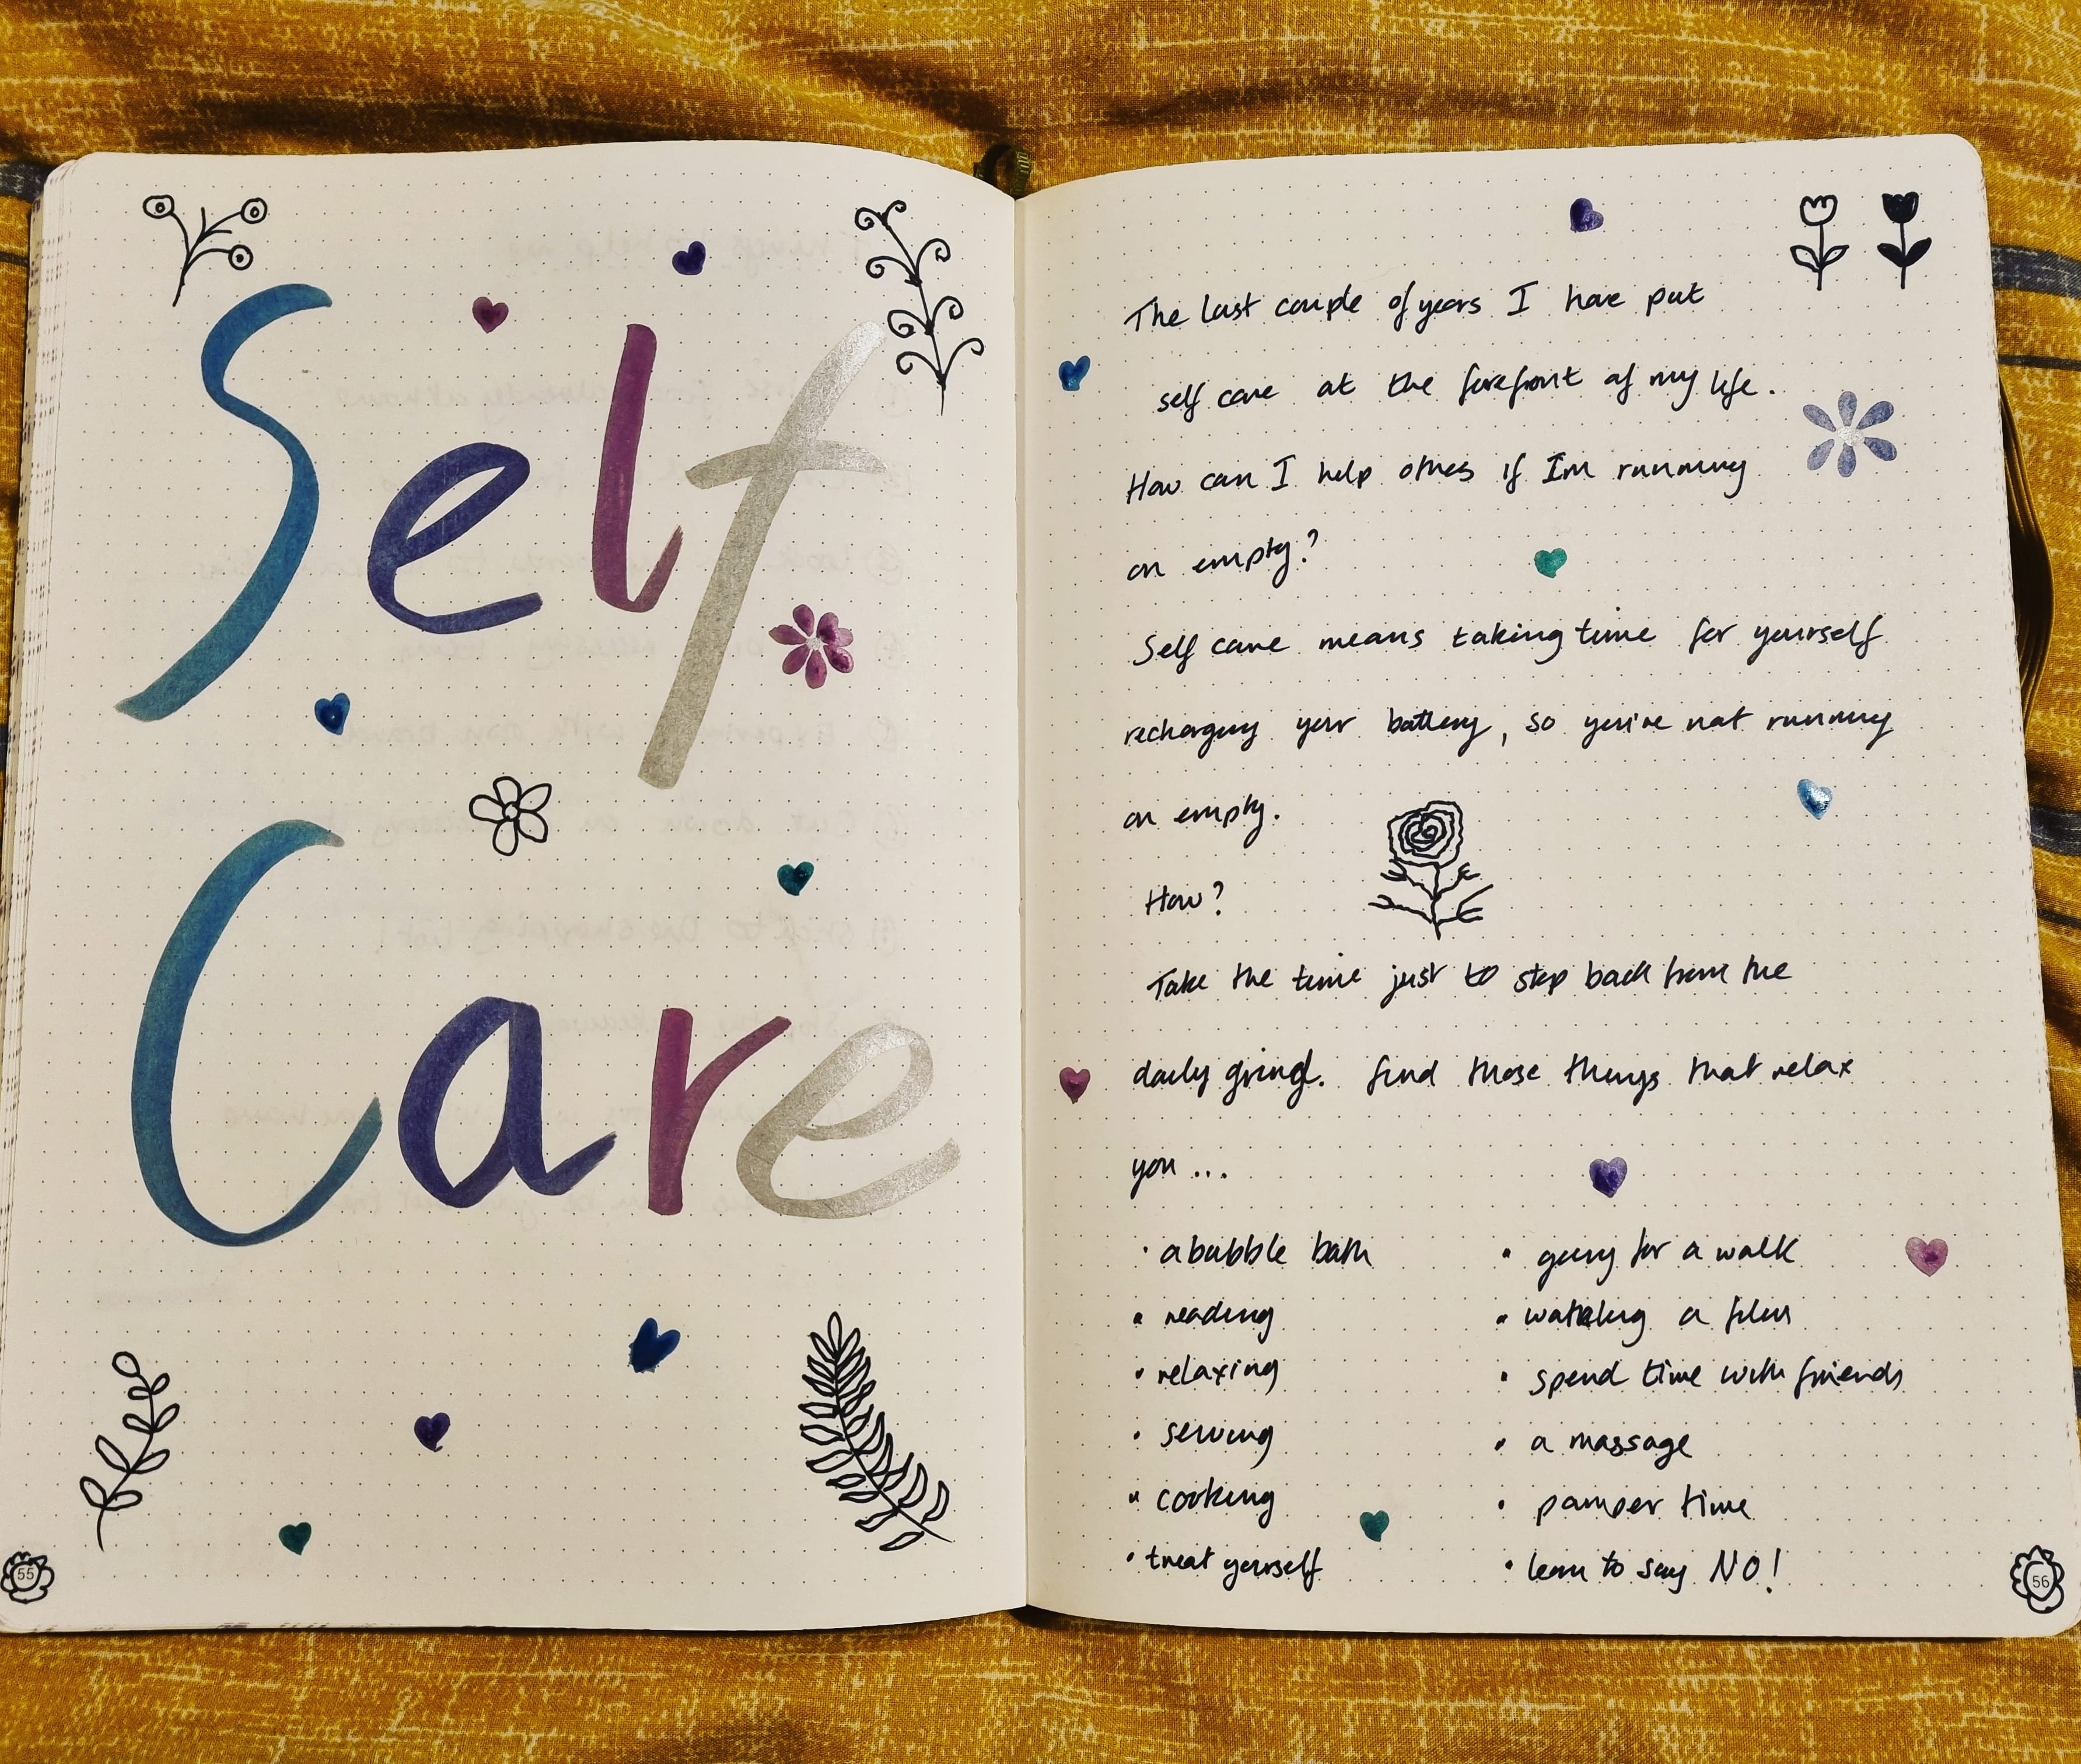 Self
Care
55
The last couple of years I have put
self care at the forefront of my life.
How can I help others if I'm running
on empty?
Self care means taking time for yourself
recharging your battery, so you're not running
on empty.
How?
Take the time just to step back from the
daily grind. find those things that relax
you...
• a bubble bath
• reading
• relaxing
• sewing
• cooking
• treat yourself
• going for a walk
• watching a film
• spend time with friends
• a massage
• pamper time
• learn to say NO!
56